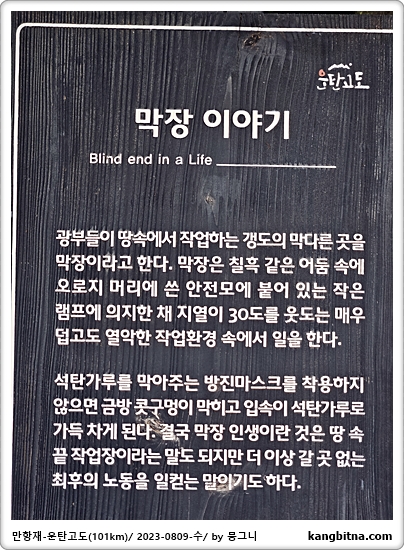 운탄고도
막장 이야기
Blind end in a Life
광부들이 땅속에서 작업하는 갱도의 막다른 곳을
막장이라고 한다. 막장은 칠흑 같은 어둠 속에
오로지 머리에 쓴 안전모에 붙어 있는 작은
램프에 의지한 채 지열이 30도를 웃도는 매우
덥고도 열악한 작업환경 속에서 일을 한다.
석탄가루를 막아주는 방진마스크를 착용하지
않으면 금방 콧구멍이 막히고 입속이 석탄가루로
가득 차게 된다. 결국 막장 인생이란 것은 땅 속
끝 작업장이라는 말도 되지만 더 이상 갈 곳 없는
최후의 노동을 일컫는 말이기도 하다.
만항재-운탄고도(101km)/ 2023-0809-수/ by 뭉그니
kangbitna.com